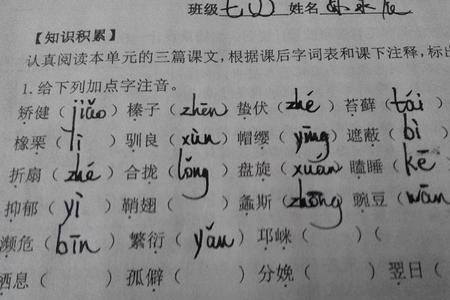 班级 七(2) 姓名
【知识积累】
认真阅读本单元的三篇课文,根据课后字词表和课下注释,标出
1. 给下列加点字注音。
矫健( jiǎo ) 榛子( zhēn ) 蛰伏( zhé ) 苔藓( tái )
橡栗( lì ) 驯良( xùn ) 帽缨( yīng ) 遮蔽( bì )
折扇( zhé ) 合拢( lǒng ) 盘旋( xuán ) 瞌睡( kē )
抑郁( yì ) 鞘翅( ) 螽斯( zhōng ) 豌豆( wān
濒危( bīn ) 繁衍( yǎn ) 邛崃( )(
栖息( ) 孤僻( ) 分娩( ) 翌日(